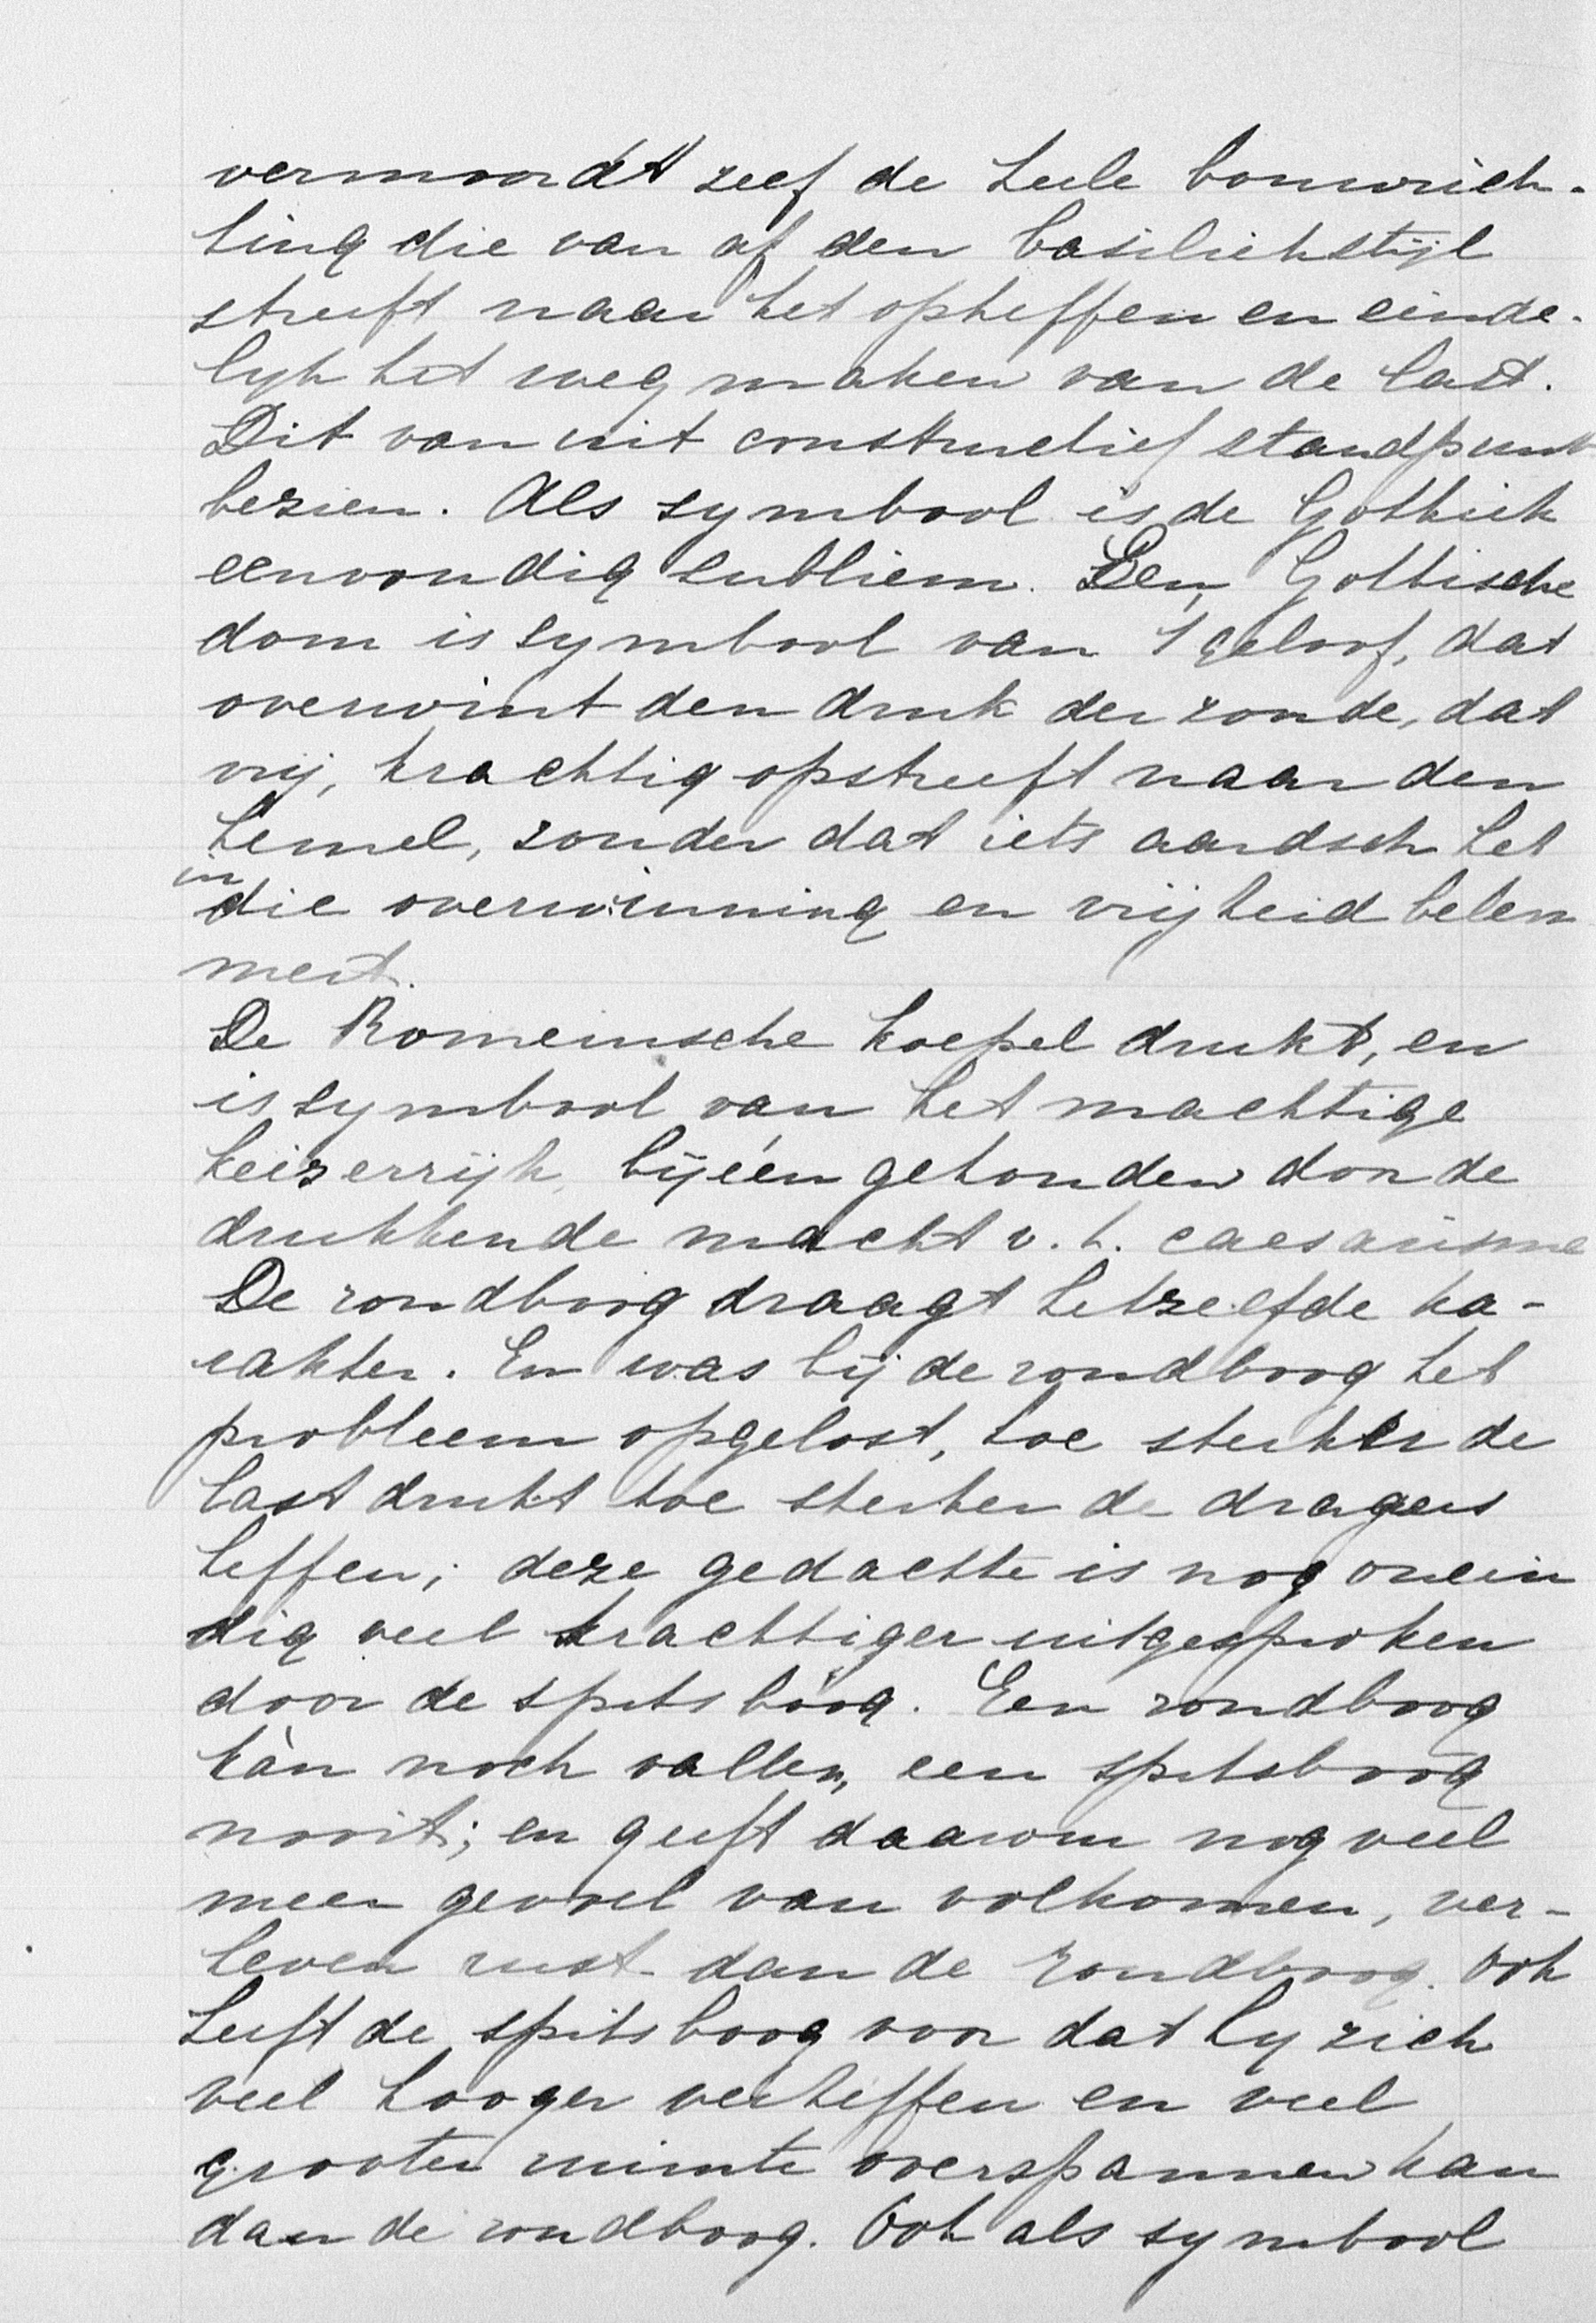 vermoordt zelf de heele bouwrich-
ting die van af den basiliekstijl
streeft naar het opheffen en einde-
lyk het weg maken van de last.
Dit van uit constructief standpunt
bezien. Als symbool is de Gothiek
eenvoudig subliem. Den Gothische
dom is symbool van 't geloof, dat
overwint den druk der zonde, dat
vrij, krachtig opstreeft naar den
hemel, zonder dat iets aardsch het
in
die overwinning en vrijheid belem
mert.
De Romeinsche koepel drukt, en
is symbool van het machtige
keizerrijk, bijéén gehouden door de
drukkende macht v. h. caesarisme
De rondboog draagt hetzelfde ka-
rakter. En was bij de rondboog het
probleem opgelost, hoe sterker de
last drukt hoe sterker de dragers
heffen; deze gedachte is nog onein
dig veel krachtiger uitgesproken
door de spitsboog. Een rondboog
kàn noch vallen, een spitsboog
nooit; en geeft daarom nog veel
meer gevoel van volkomen, ver-
heven rust dan de rondboog. Ook
heeft de spitsboog voor dat hy zich
veel hooger verheffen en veel
grooter ruimte overspannen kan
dan de rondboog. Ook als symbool